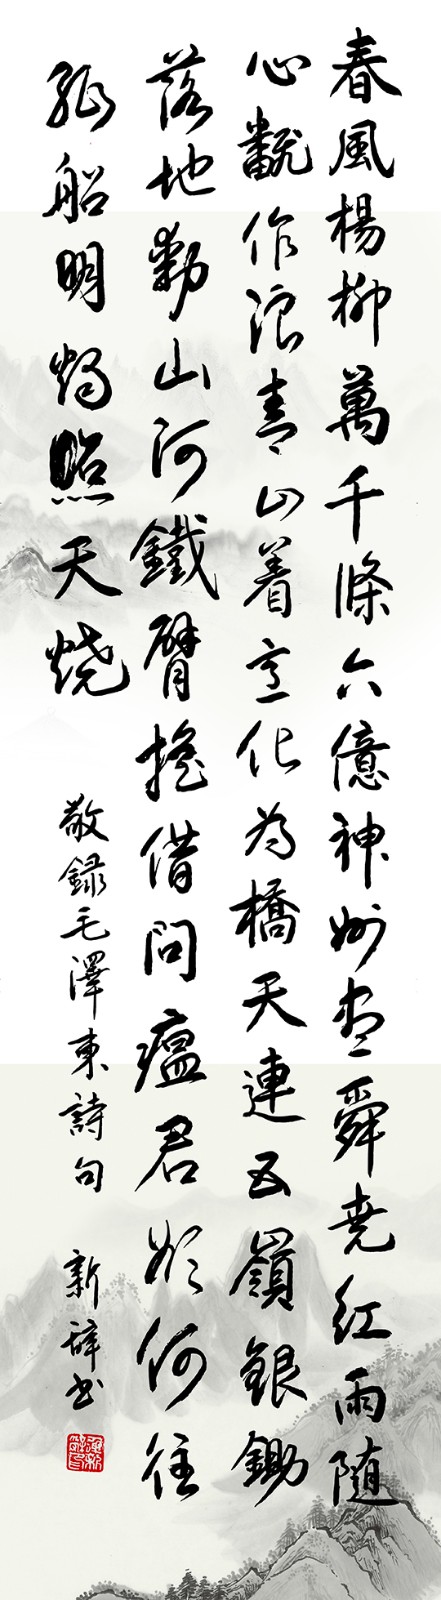 春風楊柳萬千條六億神州盡舜尧紅雨随
心翻作浪青山着意化為橋天連五嶺銀鋤
落地動山河鐵臂搖借問瘟君欲何往
紙船明燭照天烧
敬録毛澤東詩句 新辞书